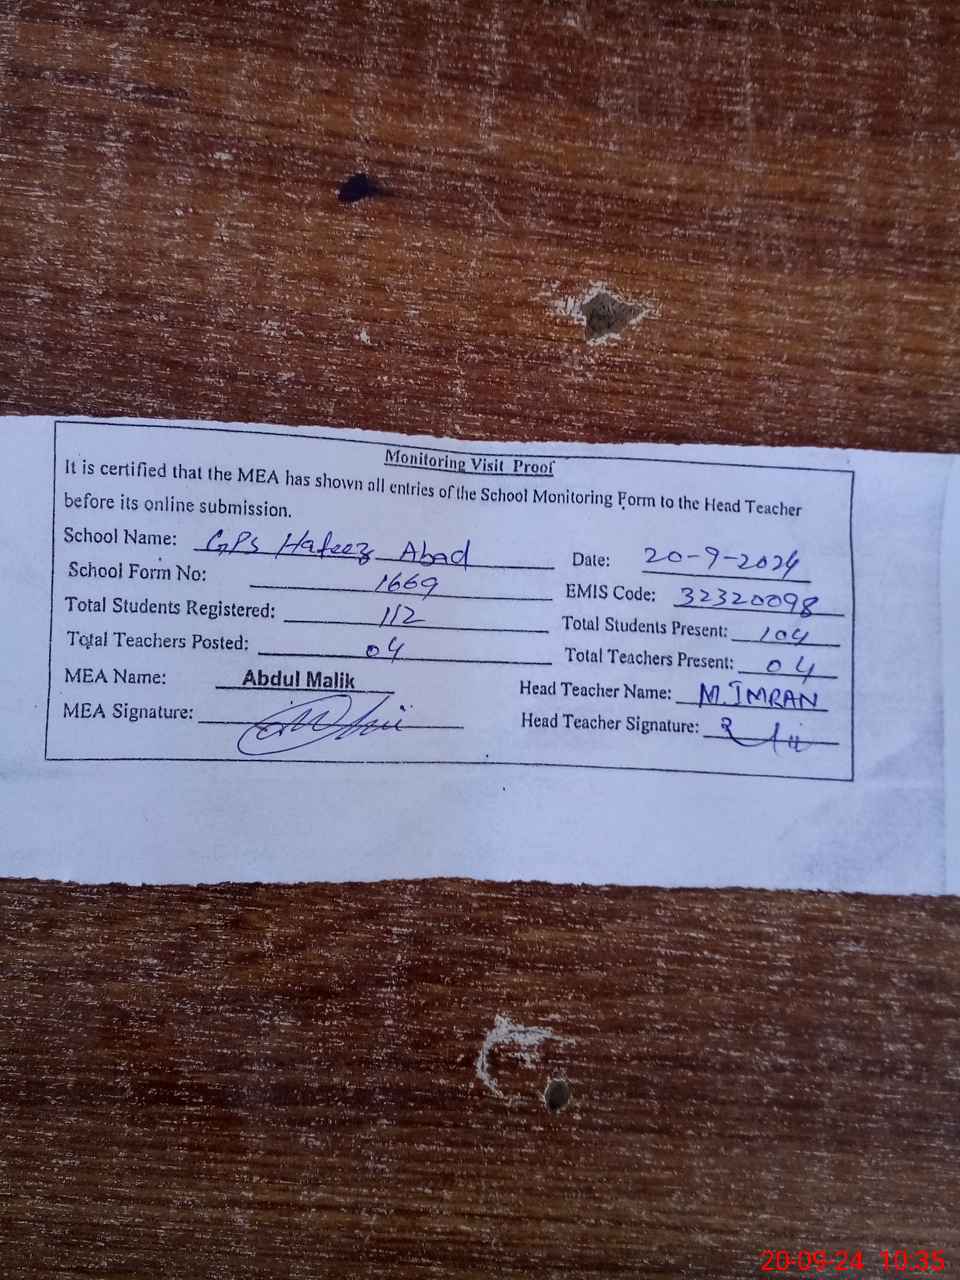 Monitoring Visit Proof
It is certified that the MEA has shown all entries of the School Monitoring Form to the Head Teacher
before its online submission.
School Name: GPS Hafeez Abad Date: 20-9-2024
School Form No: 1669 EMIS Code: 32320098
Total Students Registered: 112 Total Students Present: 104
Total Teachers Posted: 04 Total Teachers Present: 04
MEA Name: Abdul Malik Head Teacher Name: M.IMRAN
MEA Signature: Head Teacher Signature:
20-09-24 10:35